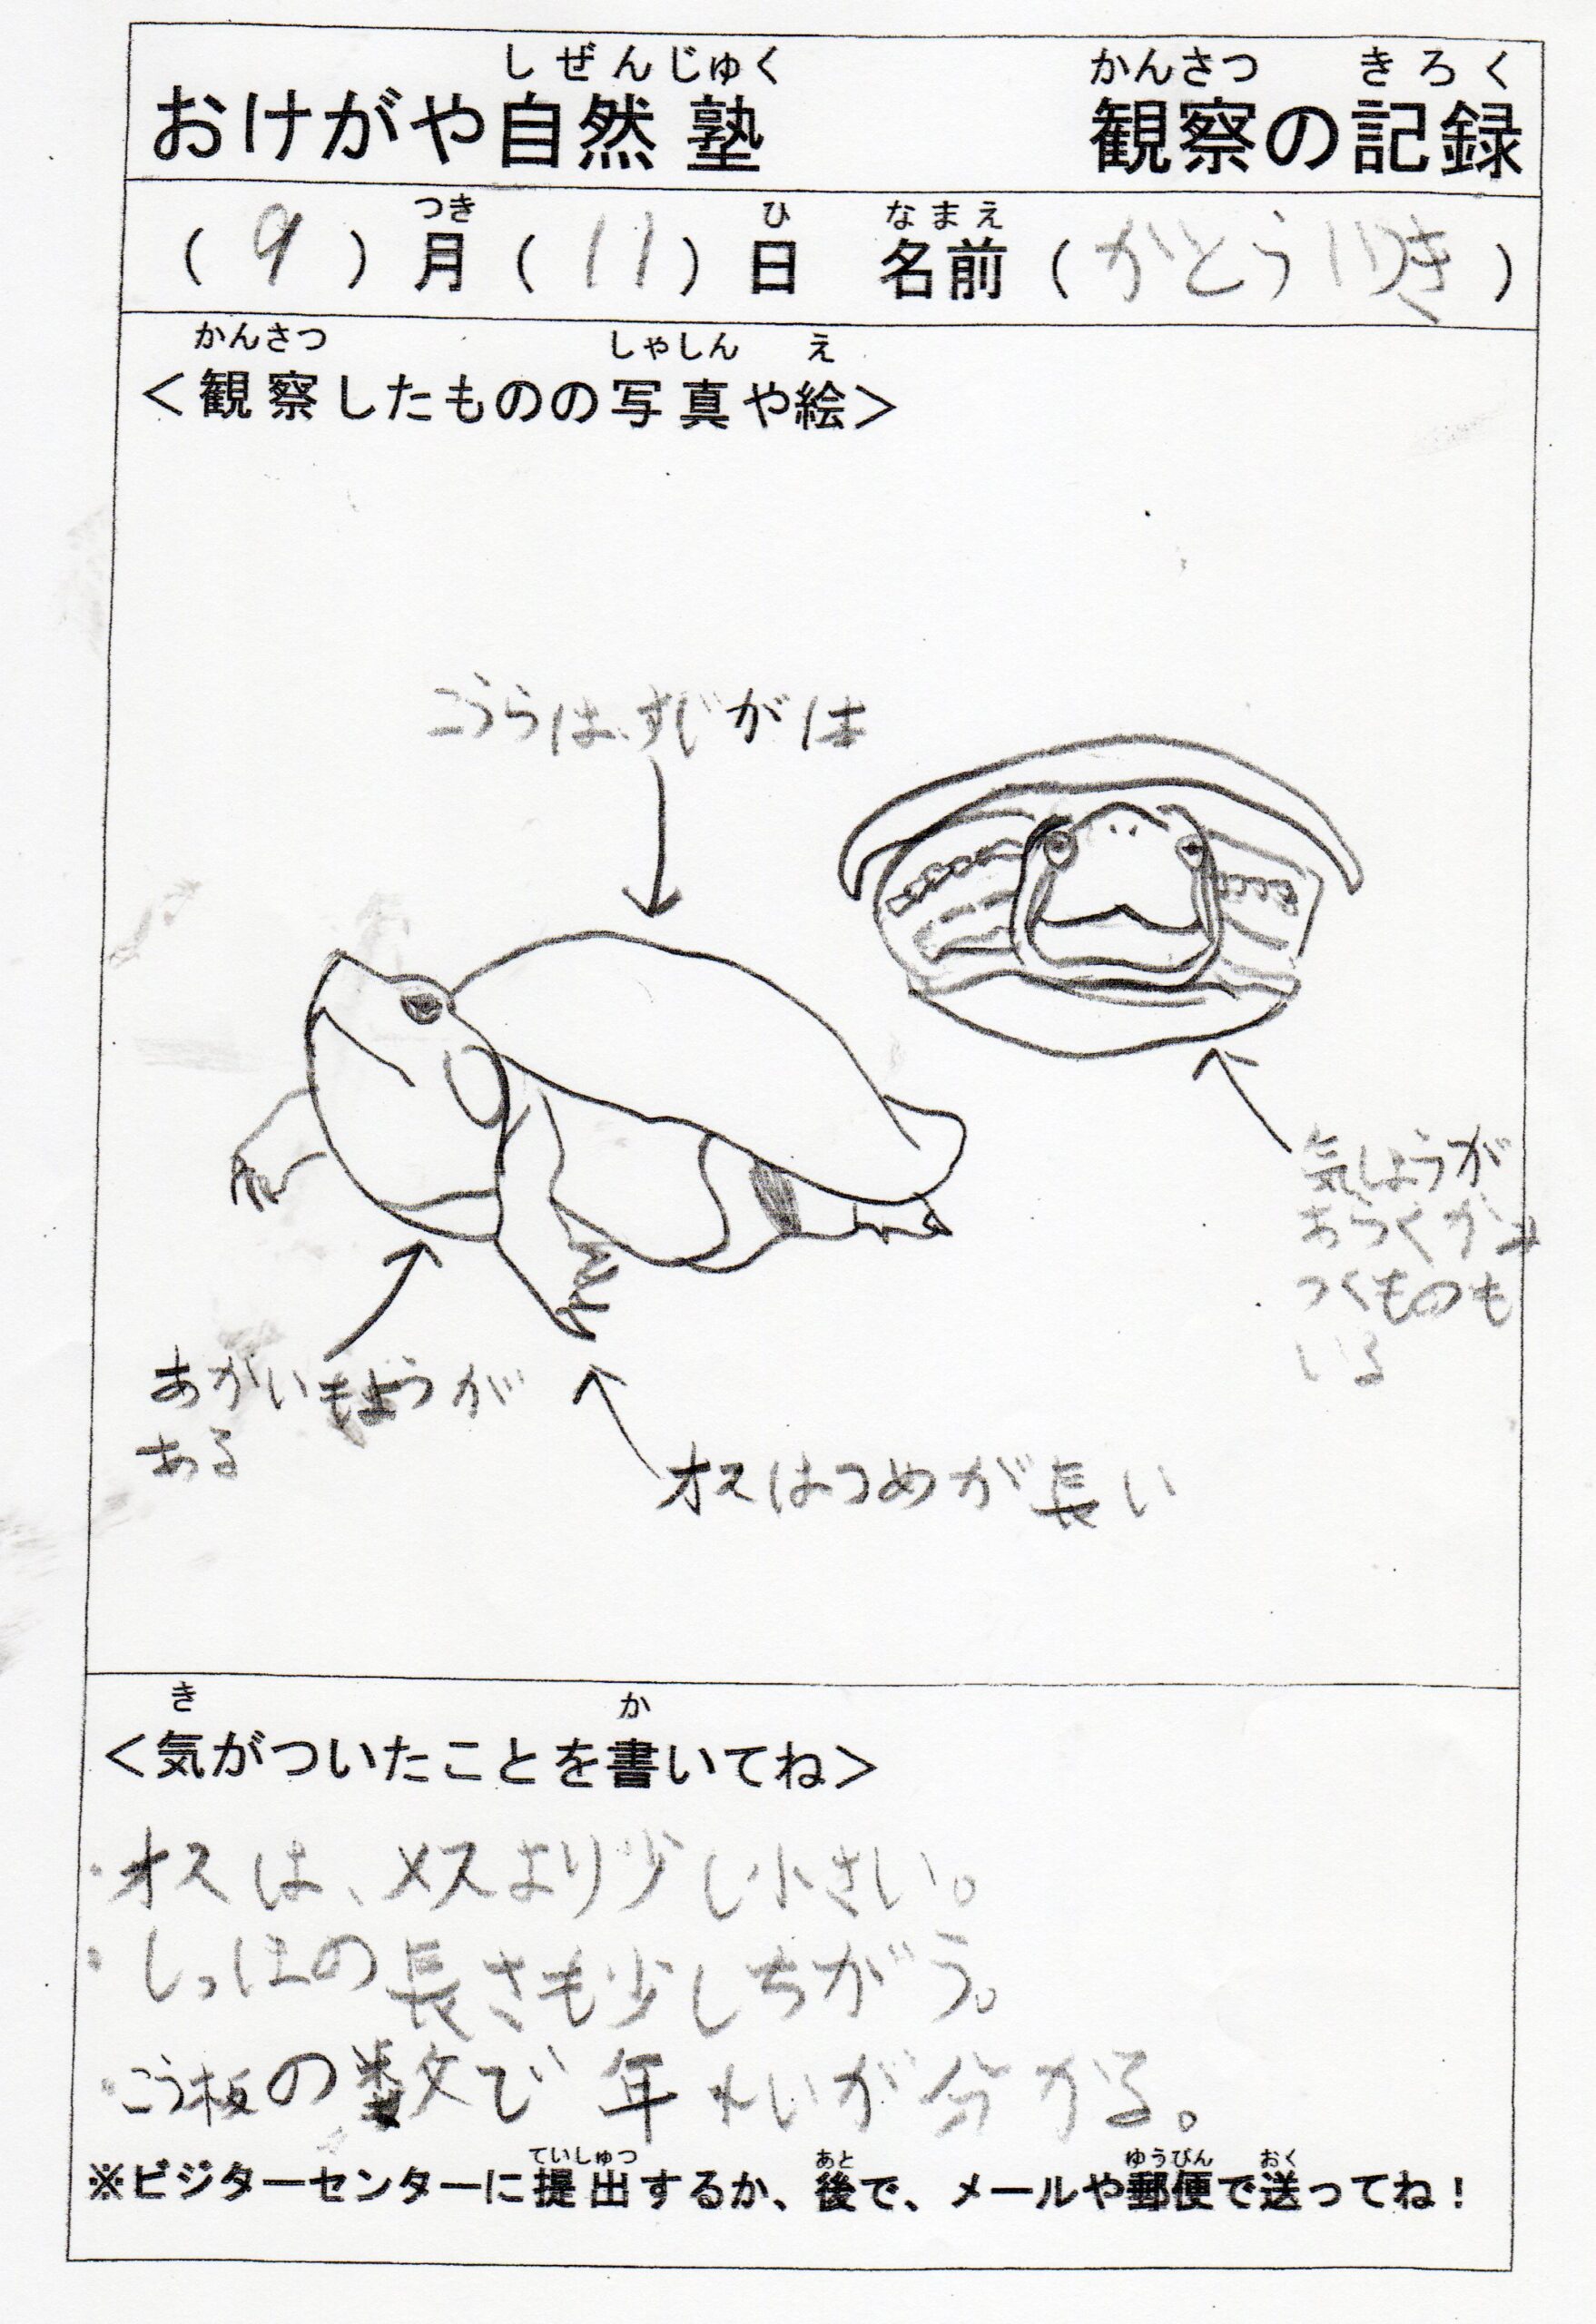 しぜんじゅく かんさつ きろく
おけがや自然塾 観察の記録
つき ひ なまえ
(9)月(11)日 名前(かとういつき)
かんさつ しゃしん え
<観察したものの写真や絵>
こうらは、すじがは
気しょうが
あらくかみ
つくものも
いる
あかいもようが
ある
オスはつめが長い
き か
<気がついたことを書いてね>
・オスは、メスより少し小さい。
・しっぽの長さも少しちがう。
・こう板の数で年れいが分かる。
ていしゅつ あと ゆうびん おく
※ビジターセンターに提出するか、後で、メールや郵便で送ってね！